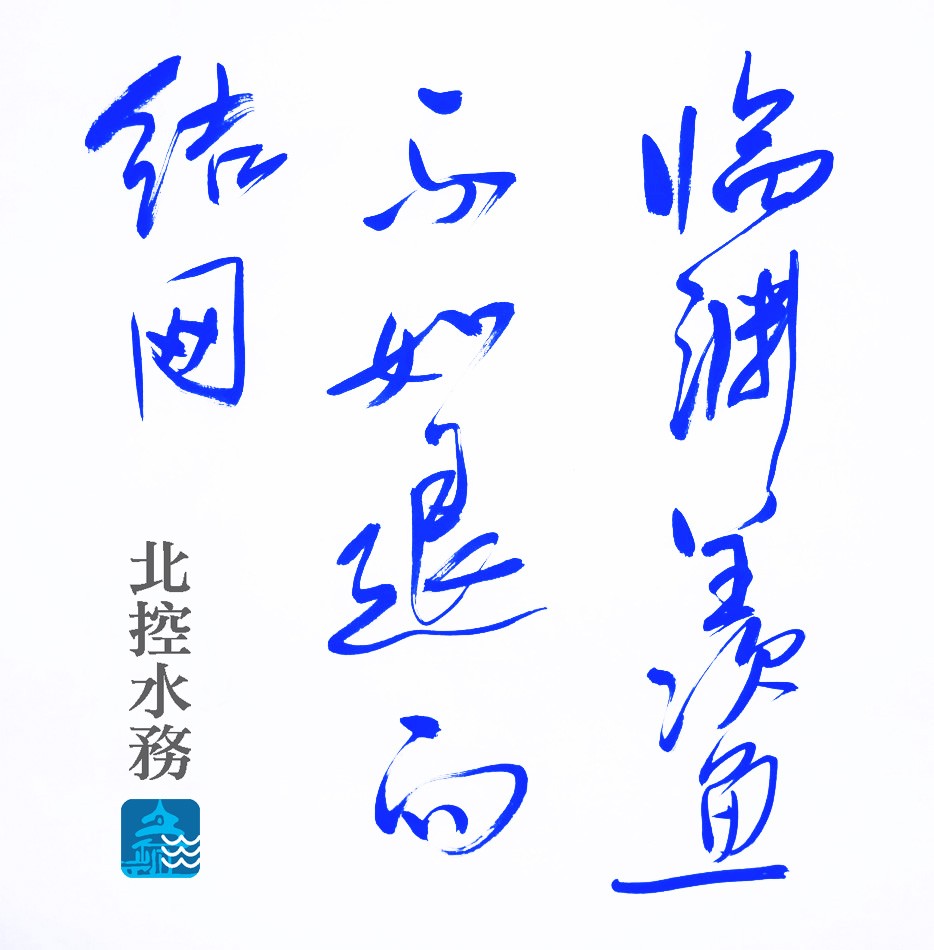 临渊羡鱼
不如退而
结网
北控水務